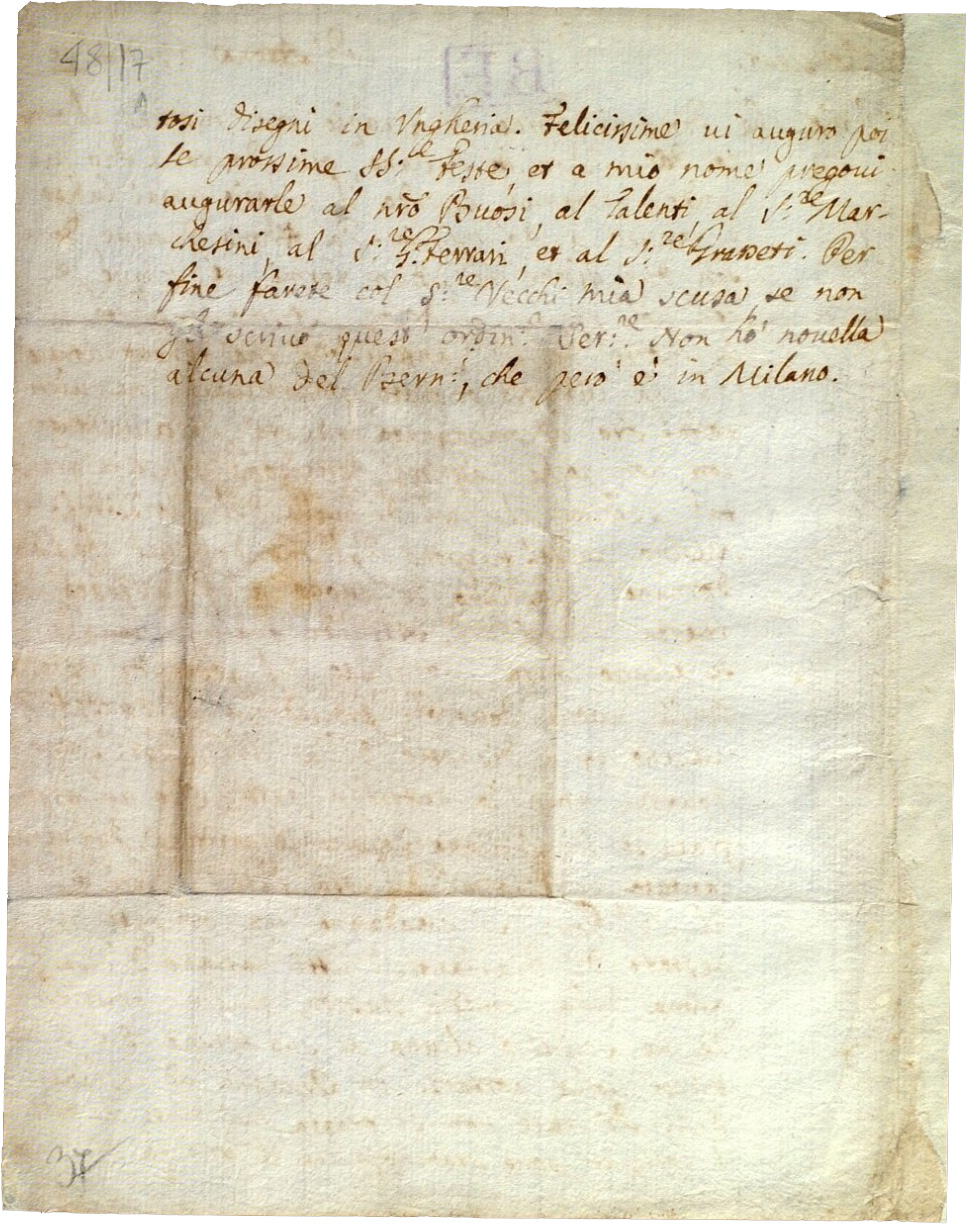 48/17
BE
tosi disegni in Vngheria. Felicissime vi auguro poi
le prossime SS.te feste, et a mio nome pregovi
augurarle al nrõ Buosi, al Talenti, al S.re Mar-
chesini, al S.re G. Ferrari, et al S.re Grasseti. Per
fine farete col S.re Vecchi mia scusa se non
gli scrivo questo ordin.o Ser.re Non hò novella
alcuna del Bern.i, che però è in Milano.
37